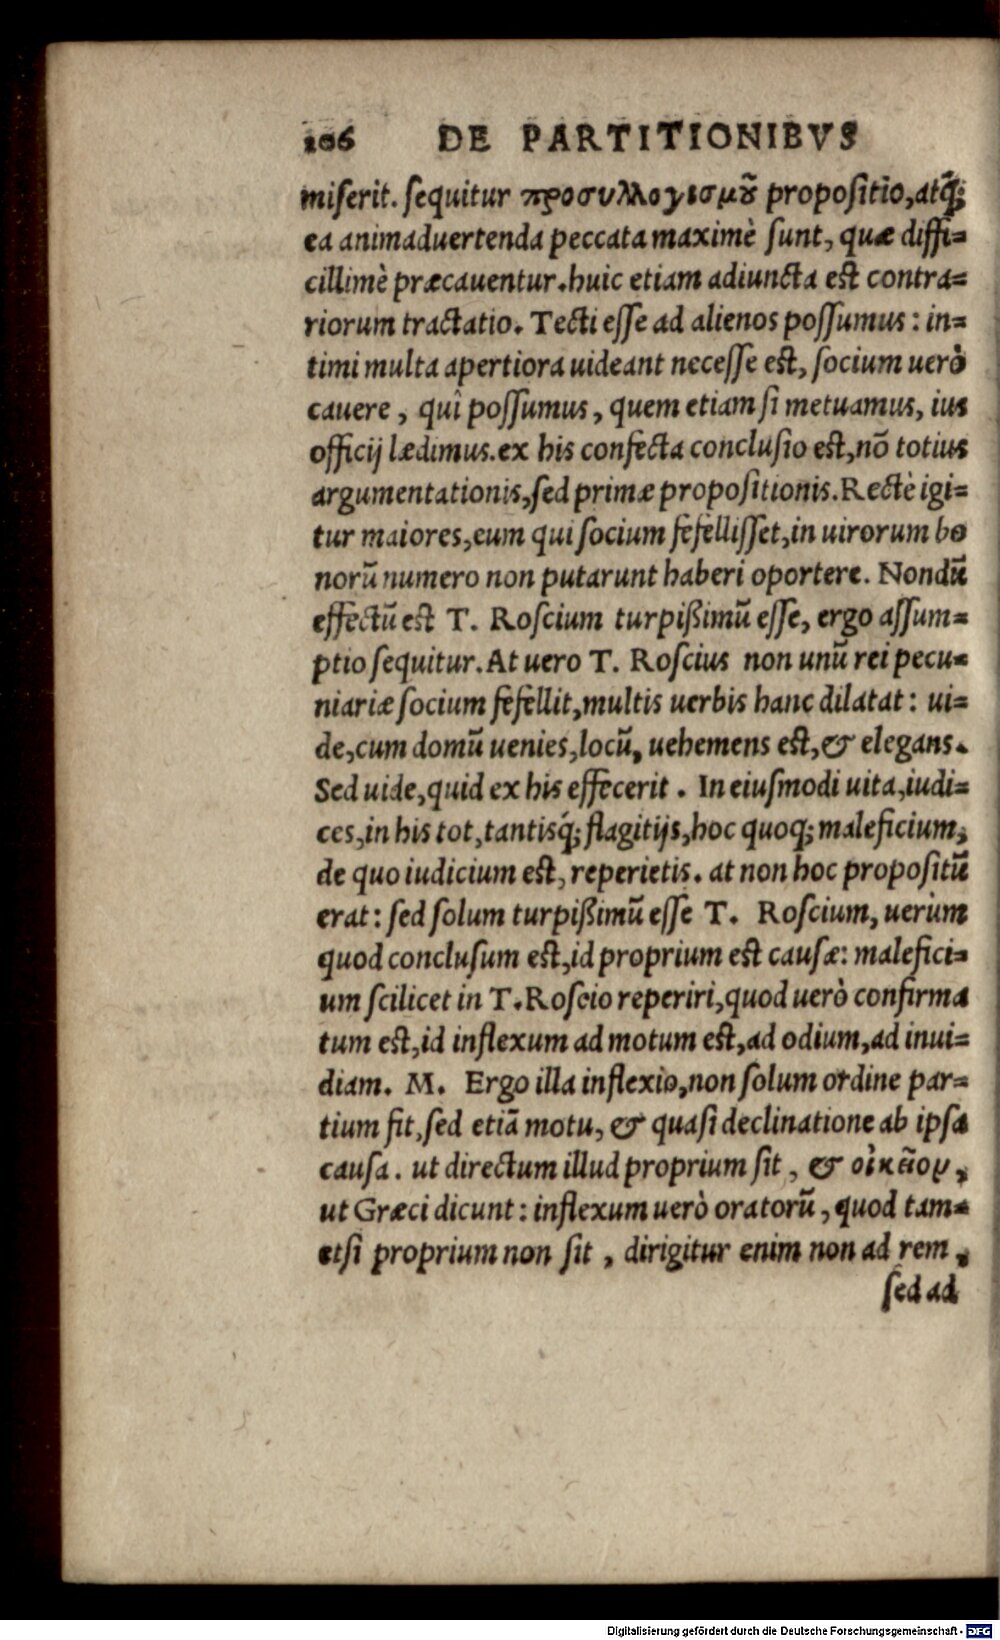 106 DE PARTITIONIBVS
miserit. sequitur προσυλλογισμοῦ propositio, atq́;
ea animaduertenda peccata maximè sunt, quæ diffi=
cillimè præcauentur. huic etiam adiuncta est contra=
riorum tractatio. Tecti esse ad alienos possumus: in=
timi multa apertiora uideant necesse est, socium uerò
cauere, quî possumus, quem etiam si metuamus, ius
officij lædimus. ex his confecta conclusio est, nõ totius
argumentationis, sed primæ propositionis. Rectè igi=
tur maiores, eum qui socium fefellisset, in uirorum bo
norũ numero non putarunt haberi oportere. Nondũ
effectũ est T. Roscium turpißimũ esse, ergo assum=
ptio sequitur. At uero T. Roscius non unũ rei pecu=
niariæ socium fefellit, multis uerbis hanc dilatat: ui=
de, cum domũ uenies, locũ, uehemens est, & elegans.
Sed uide, quid ex his effecerit. In eiusmodi uita, iudi=
ces, in his tot, tantisq́; flagitijs, hoc quoq; maleficium,
de quo iudicium est, reperietis. at non hoc propositũ
erat: sed solum turpißimũ esse T. Roscium, uerùm
quod conclusum est, id proprium est causæ: malefici=
um scilicet in T. Roscio reperiri, quod uerò confirma
tum est, id inflexum ad motum est, ad odium, ad inui=
diam. M. Ergo illa inflexio, non solum ordine par=
tium fit, sed etiã motu, & quasi declinatione ab ipsa
causa. ut directum illud proprium sit, & οἰκεῖον,
ut Græci dicunt: inflexum uerò oratorũ, quod tam=
etsi proprium non sit, dirigitur enim non ad rem,
sed ad
Digitalisierung gefördert durch die Deutsche Forschungsgemeinschaft - DFG